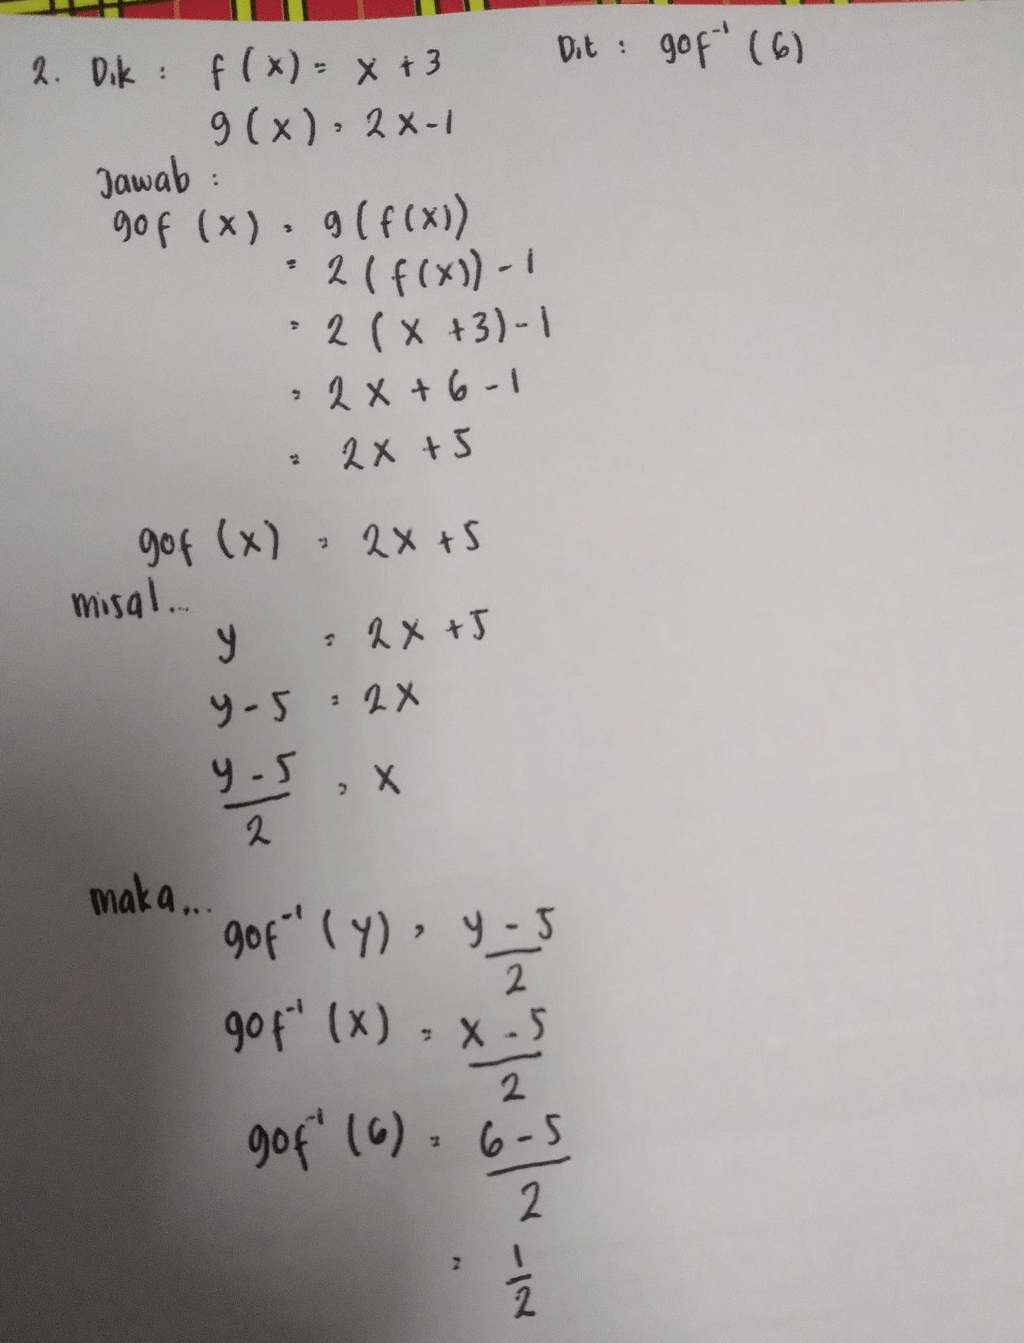 2. Dik : f(x) = x + 3 Dit : gof⁻¹ (6)
g(x) = 2x-1
Jawab :
gof (x) = g(f(x))
= 2(f(x)) - 1
= 2(x + 3) - 1
= 2x + 6 - 1
= 2x + 5
gof (x) = 2x + 5
misal...
y = 2x + 5
y - 5 = 2x
y - 5 = x
2
maka...
gof⁻¹ (y) = y - 5
2
gof⁻¹ (x) = x - 5
2
gof⁻¹ (6) = 6 - 5
2
= 1
2